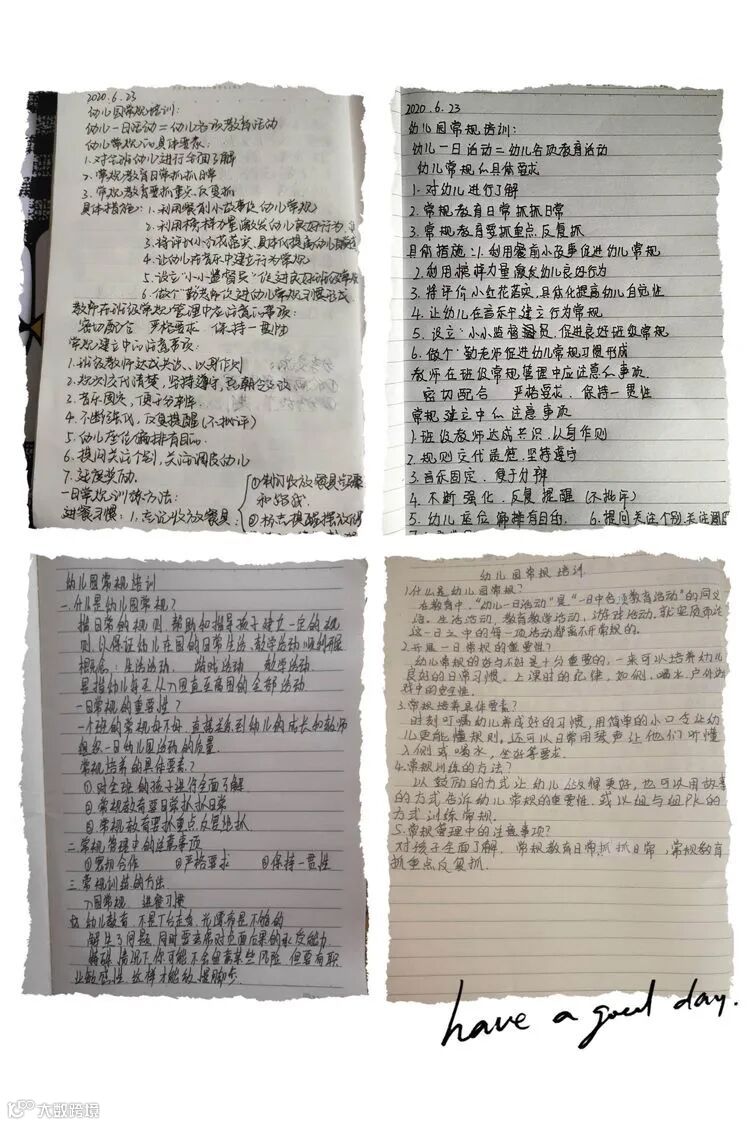 2020.6.23
幼儿园常规培训:
幼儿一日活动=幼儿各项教育活动
幼儿常规的具体要求:
1.对全班幼儿进行全面了解
2.常规教育日常抓抓日常
3.常规教育要抓重点、反复抓
具体措施:1.利用餐前小故事促幼儿常规
2.利用榜样力量激发幼儿良好行为
3.将评价小红花落实、具体化提高幼儿
4.让幼儿在音乐中建立行为常规
5.设立“小小监督员”促进良好班级常规
6.做个“勤”老师促进幼儿常规习惯形成
教师在班级常规管理中应注意的事项:
密切配合 严格要求 保持一贯性
常规建立中的注意事项:
1.班级教师达成共识、以身作则
2.规则交代清楚,坚持遵守,
3.音乐固定,便于分辨
4.不断强化,反复提醒(不批评)
5.幼儿座位编排有目的
6.提问关注个别,关注调皮幼儿
7.适度奖励.
一日常规训练方法:
进餐习惯:1.忘记收放餐具:
①制订收放餐具步骤
和路线.
②标志提醒摆放
2020.6.23
幼儿园常规培训:
幼儿一日活动=幼儿各项教育活动
幼儿常规的具体要求
1.对幼儿进行了解
2.常规教育日常抓抓日常
3.常规教育要抓重点反复抓
具体措施:1.利用餐前小故事促进幼儿常规
2.利用榜样力量激发幼儿良好行为
3.将评价小红花落实,具体化提高幼儿自觉性
4.让幼儿在音乐中建立行为常规
5.设立“小小监督员,促进良好班级常规
6.做个“勤老师促进幼儿常规习惯形成
教师在班级常规管理中应注意的事项.
密切配合 严格要求. 保持一贯性
常规建立中的注意事项
1.班级教师达成共识.以身作则
2.规则交代清楚.坚持遵守
3.音乐固定.便于分辨
4.不断强化.反复提醒(不批评)
5.幼儿座位编排有目的. 6.提问关注个别.关注调皮
幼儿园常规培训
一.什么是幼儿园常规?
指日常的规则,帮助和指导孩子建立一定的规
则,以保证幼儿在园的日常生活、教学活动顺利开展
概念:生活活动、 游戏活动 教学活动.
是指幼儿每天从入园直至离园的全部活动
一日常规的重要性?
一个班的常规好不好,直接关系到幼儿的成长和教师
组织一日幼儿园活动的质量.
常规培养的具体要求?
①对全班的孩子进行全面了解
②常规教育要日常抓抓日常
③常规教育要抓重点反复抓.
二.常规管理中的注意事项
①密切合作 ②严格要求 ③保持一贯性
三.常规训练的方法
入园常规 进餐习惯
幼儿教育,不是T台走秀,光漂亮是不够的
解决了问题,同时要去席对负面后果的承受能力
特殊情况下你可能不会留意某些风险,但要有职
业敏感性,这样才能放慢脚步.
幼儿园常规培训
1.什么是幼儿园常规?
在教育中,“幼儿一日活动”是“一日中各项教育活动”的同义
语。生活活动,教育教学活动,游戏活动.就实质而论
这一日之中的每一项活动都离不开常规的。
2.开展一日常规的重要性?
幼儿常规的好与不好是十分重要的,一来可以培养幼儿
良好的日常习惯。上课时的纪律,如例:喝水.户外游
戏中的安全性.
3.常规培养具体要素?
时刻叮嘱幼儿养成好的习惯,用简单的小口令让幼
儿更能懂规则,还可以日常用琴声让他们听懂
入侧或喝水,坐好等要求.
4.常规训练的方法?
以鼓励的方式让幼儿做得更好,也可以用故事
的方式告诉幼儿常规的重要性.或以组与组PK的
方式训练常规.
5.常规管理中的注意事项?
对孩子全面了解, 常规教育日常抓抓日常,常规教育
抓重点反复抓.
have a good day.
大数跨境